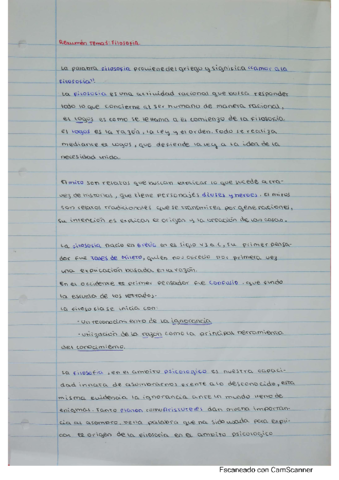 Resumen tema 1: Filosofía.
La palabra filosofía proviene del griego y significa "amor a la
filosofía"
La filosofía es una actividad racional que busca responder
todo lo que concierne al ser humano de manera racional,
el logos es como se le llama a el comienzo de la filosofía.
El logos es la razón, la ley y el orden. Todo se realiza
mediante el logos, que defiende la ley, a la idea de la
necesidad unida.
El mito son relatos que buscan explicar lo que sucede a tra-
ves de historias, que tiene personajes dioses y heroes. El mito
son relatos tradicionales que se transmiten por generaciones,
su intención es explicar el origen y la creación de las cosas.
La filosofía nació en Grecia en el siglo V a.C, su primer pensa-
dor fue Tales de Mileto, quien por primera vez
una explicación basada en la razón.
En el occidente el primer pensador fue Confucio, que funda
la escuela de los letrados.
La filosofía se inicia con:
- Un reconocimiento de la ignorancia
- Utilización de la razón como la principal herramienta
del conocimiento.
La filosofía, en el ámbito psicológico es nuestra capaci-
dad innata de asombrarnos frente a lo desconocido, esta
misma evidencia la ignorancia ante un mundo lleno de
enigmas. Tanto Platón como Aristóteles dan mucha importan-
cia al asombro, pero palabra que ha sido usada para expli-
car el origen de la filosofía en el ámbito psicológico
Escaneado con CamScanner